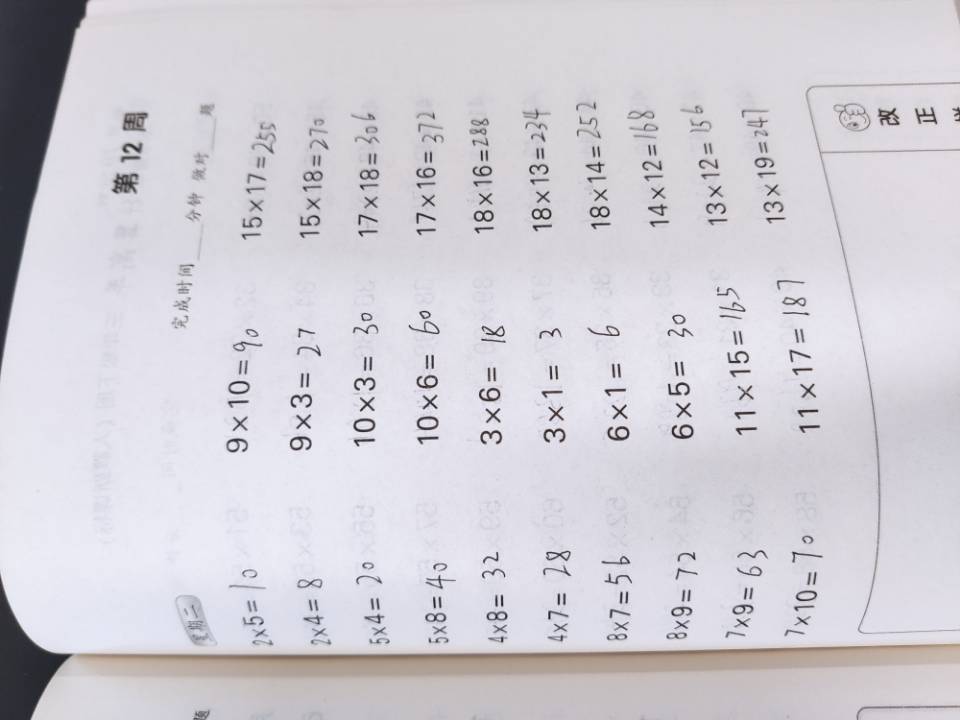 第 12 周
星期二
完成时间____分钟 做对____题
2×5=10
2×4=8
5×4=20
5×8=40
4×8=32
4×7=28
8×7=56
8×9=72
7×9=63
7×10=70
9×10=90
9×3=27
10×3=30
10×6=60
3×6=18
3×1=3
6×1=6
6×5=30
11×15=165
11×17=187
15×17=255
15×18=270
17×18=306
17×16=372
18×16=288
18×13=234
18×14=252
14×12=168
13×12=156
13×19=247
改
正
题